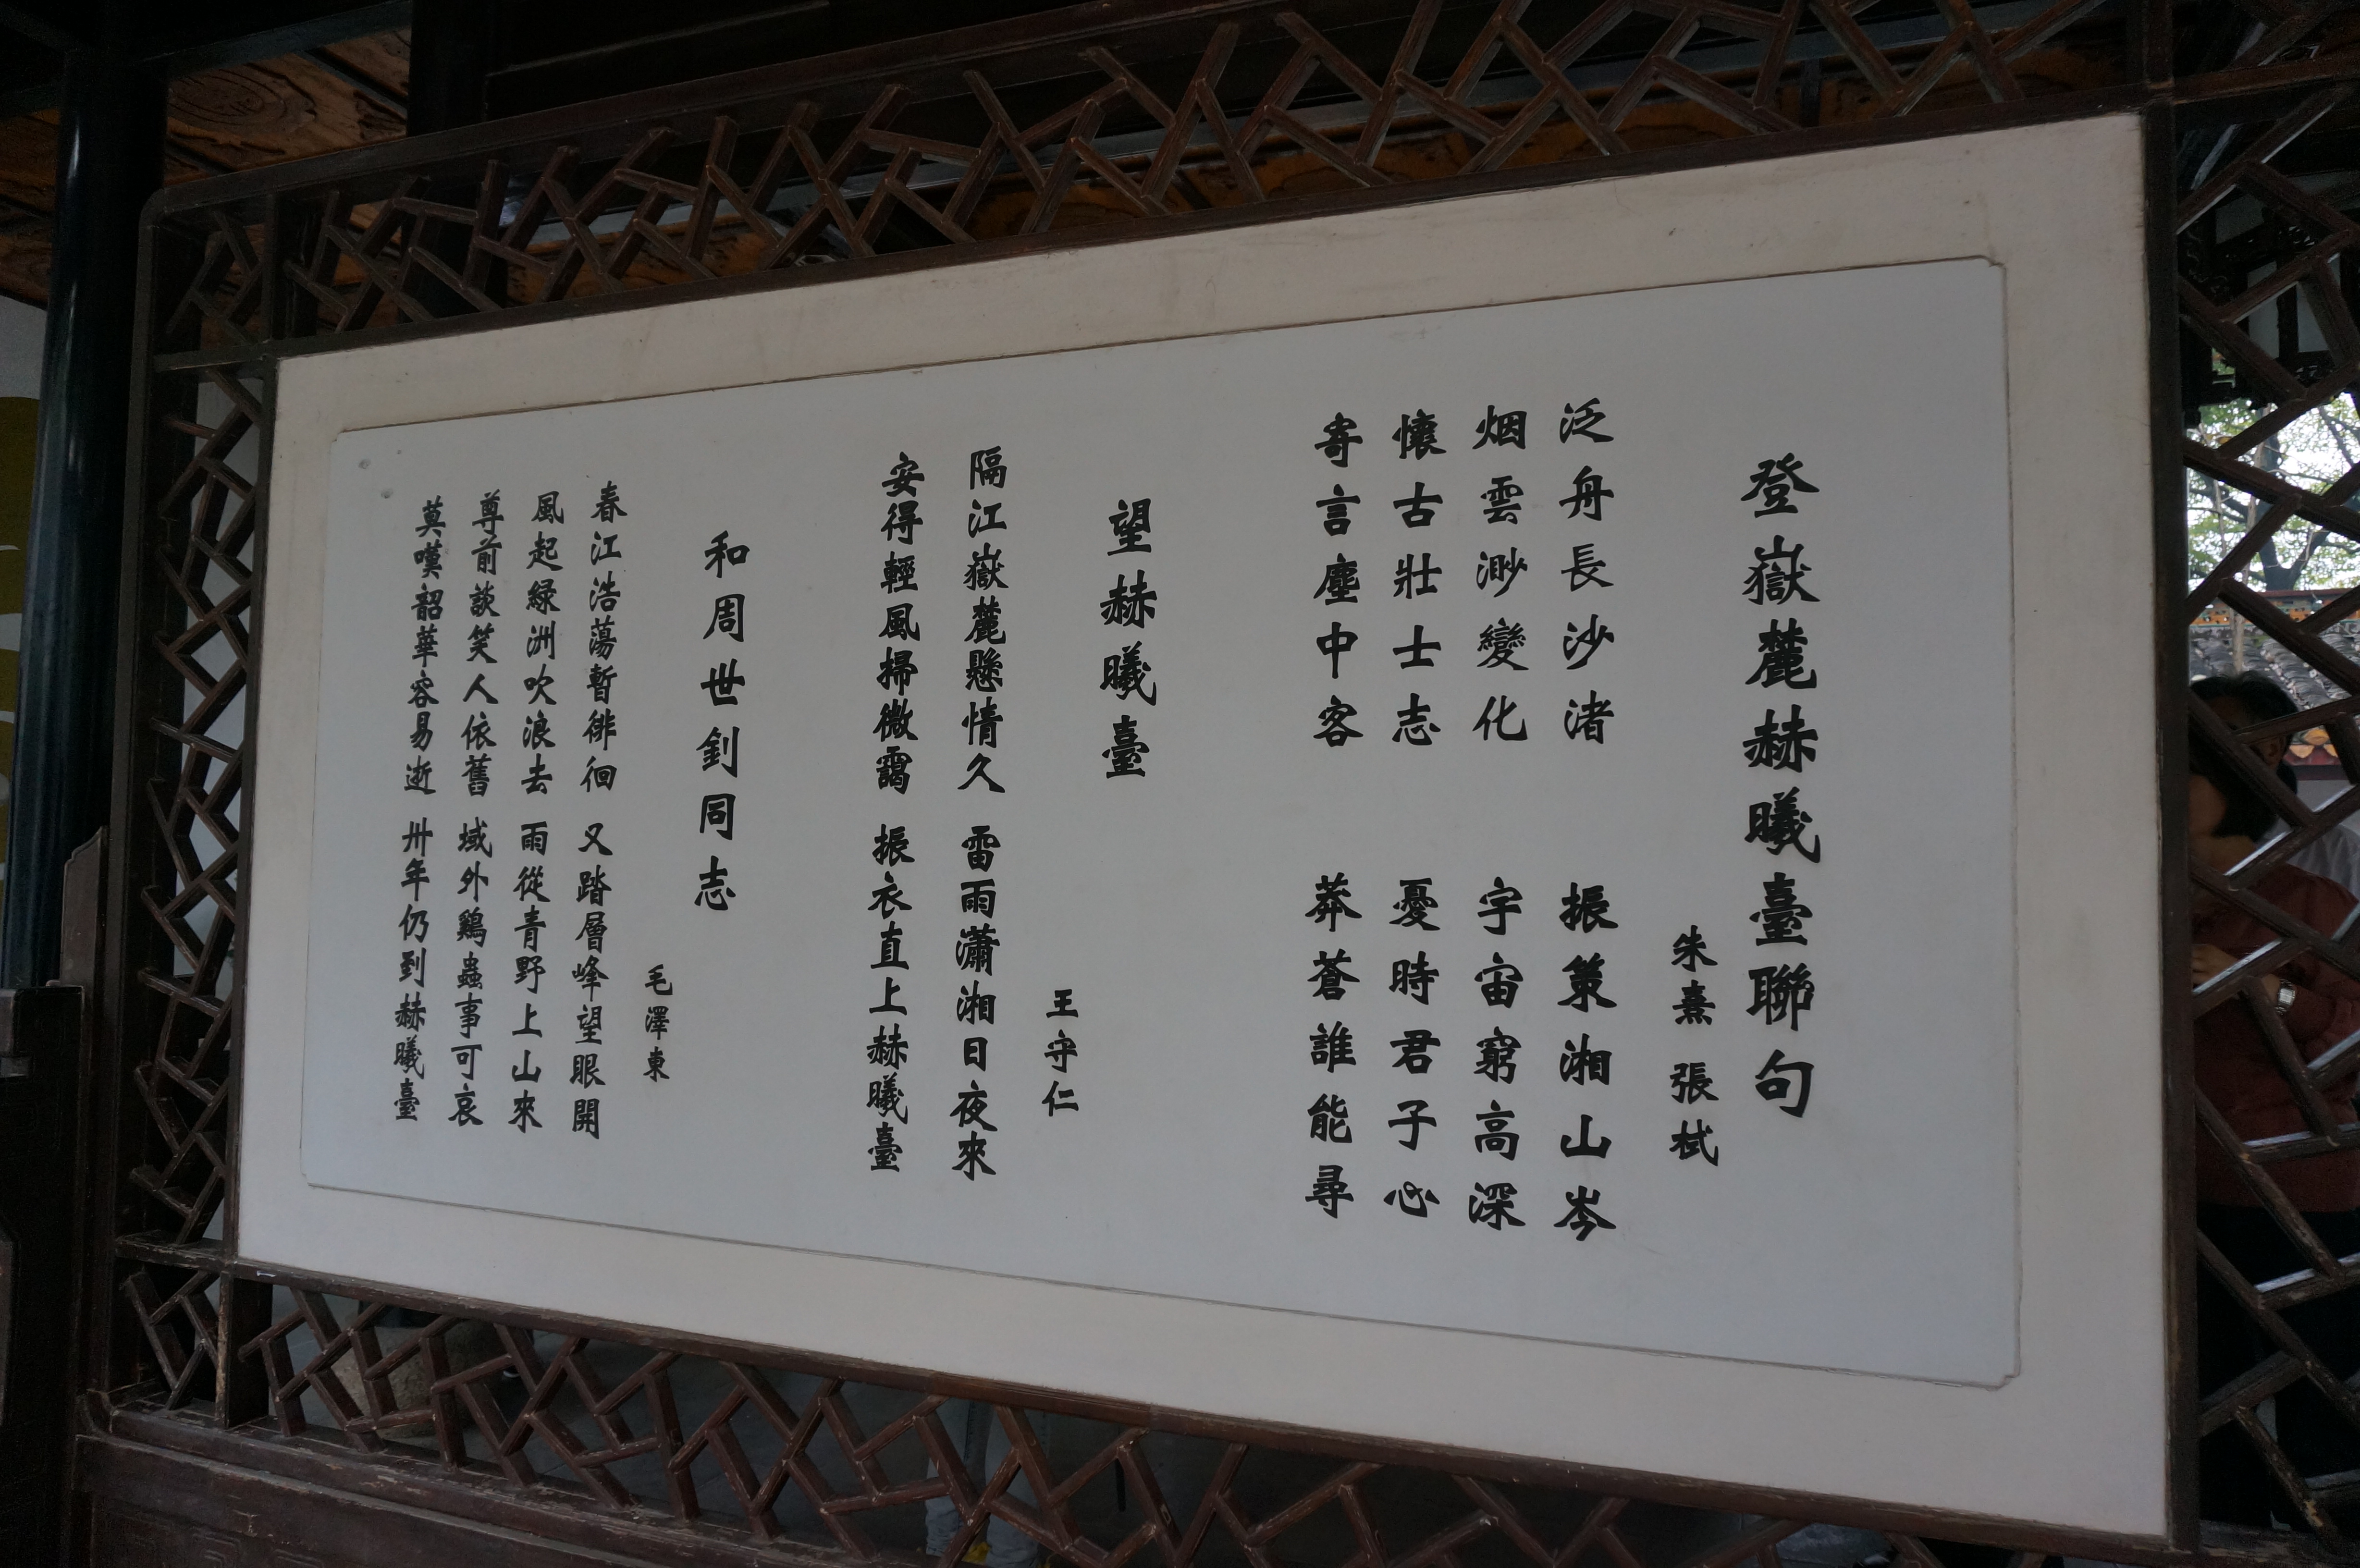 登嶽麓赫曦臺聯句
朱熹 張栻
泛舟長沙渚 振策湘山岑
烟雲渺變化 宇宙窮高深
懷古壯士志 憂時君子心
寄言塵中客 莽蒼誰能尋
望赫曦臺
王守仁
隔江嶽麓懸情久 雷雨瀟湘日夜來
安得輕風掃微靄 振衣直上赫曦臺
和周世釗同志
毛澤東
春江浩蕩暫徘徊 又踏層峰望眼開
風起綠洲吹浪去 雨從青野上山來
尊前談笑人依舊 域外鷄蟲事可哀
莫嘆韶華容易逝 卅年仍到赫曦臺